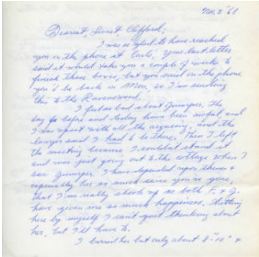 Dearest, Sweet Clifford,
I was so glad to have reached
you on the phone at last. Your last letter
said it would take you a couple of weeks to
finish those boxes, but you said on the phone
you'd be back in soon, so I'm sending
this to the
I feel so bad about Juniper. The
day before and today have been awful, and
I was upset with all the arguing and the
lawyer said I had to be there. Then I left
the meeting because I couldn't stand it
and was just going out to the cottage when I
saw Juniper. I have depended upon them
especially her so much since you're gone,
that I'm really shook up as both F. & J.
have given me so much happiness. Sitting
here by myself I can't quit thinking about
her, but I'll have to.
I buried her but only about 8"-10" &